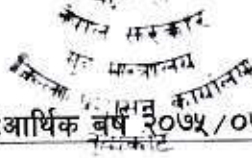 नेपाल सरकार
गृह मन्त्रालय
जिल्ला प्रशासन कार्यालय
आर्थिक वर्ष २०७५/०